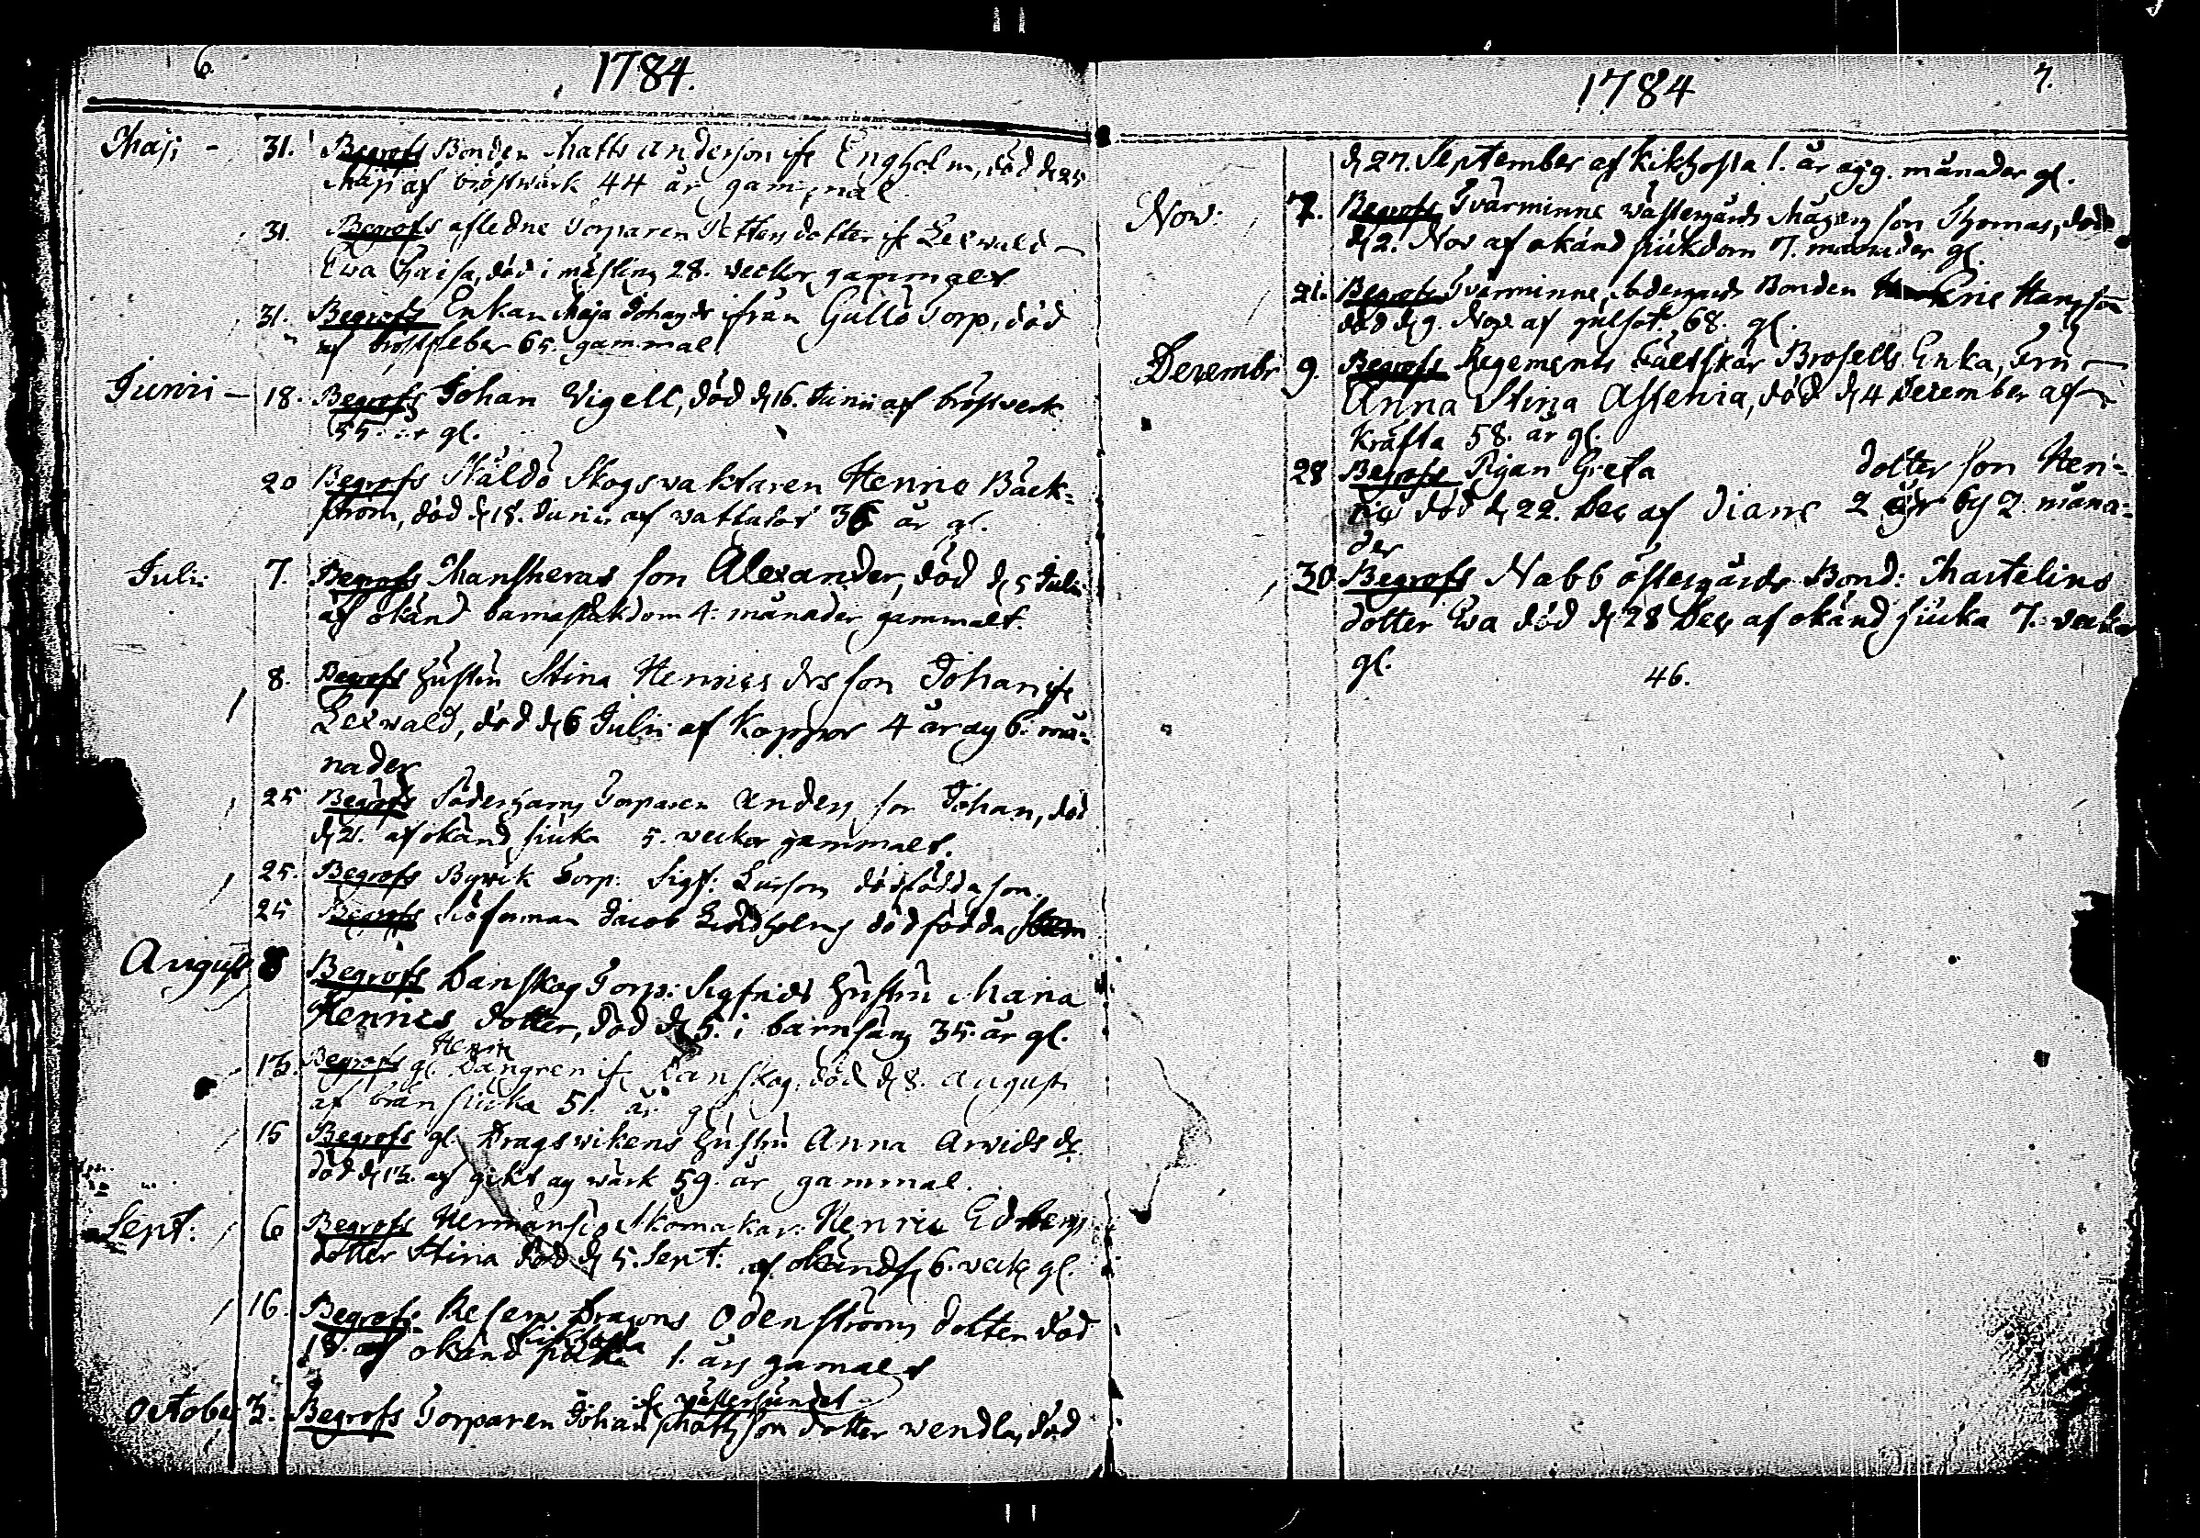 6.
1784.
Maji - 31. Begrofs Bonden Matts Anderson ifr Engholm, död d 25
Maji af bröstwärk 44 år gammal
31. Begrofs afledne Torparen Petters dotter ifr Lexwald
Ewa Caisa, död i mäsling 28. weckor gammalt
31. Begrofs Enkan Maja Johans dr ifrån Gullö Torp, död
af bröstfeber 65. gammal.
Junii - 18. Begrofs Johan Vigell, död d 16. Junii af bröstverk
55. år gl.
20 Begrofs Skåldö Skogswaktaren Henric Bäck=
ström, död d 18. Junii af wattusot 36 år gl.
Julii 7. Begrofs son Alexander, död d 5 Julii
af okänd barnasjukdom 4. månader gammalt.
8. Begrofs hustru Stina Henrics drs son Johan ifr
Lexwald, död d 6 Julii af Koppor 4 år og 6. må=
nader
25 Begrofs Torparen Anders son Johan, död
d 21. af okänd siuka 5. weckor gammalt.
25. Begrofs Byvik Torp: Sigf: Larsons dödfödda son.
25 Begrofs Jacob Lindholms dödfödda
August 8 Begrofs Danskog Torp: Sigfrids hustru Maria
Henrics dotter, död d 5. i barnsäng 35. år gl.
13. Begrofs gl. Henric Dangren ifr Danskog, död d 8. Augusti
af brän siuka 51. år gl.
15 Begrofs gl. Dragswikens hustru Anna Arvids dr.
död d 13. af gikt og wärk 59. år gammal.
Sept: 6 Begrofs Hermansö Skomakar: Henric Edbergs
dotter Stina död d 5. Sept: af okänd s. 6. weck gl.
16. Begrofs Reserv Dragons Odenströms dotter död
18. af okänd kikhosta 1. års gamalt
ifr västersundet
October 3. Begrofs Torparen Johan Matsson dotter wendla, död
1784
7.
d 27. September af kikhosta 1. år og 9. månader gl.
Nov: 7. Begrofs Tvärminne Wästergårds Mågens son Thomas, död
d 2. Nov af okänd siukdom 7. månader gl.
21. Begrofs Tvärminne, Södergårds Bonden Eric Hansson
död d 9. Nov af gulsot. 68. gl.
Dezembr 9. Begrofs Regements Fältskär Brosells Enka, Fru
Anna Stina Assenia, död d 4 Dezember af
Kräfta 58. år gl.
28 Begrofs Pigan Greta dotter son Hen=
ric död d 22. Dec af 2 år og 2. måna=
der
30 Begrofs Nabb östergårds Bond: Martelins
dotter Ewa död d 28 Dec af okänd siuka 7. weckor
gl.
46.